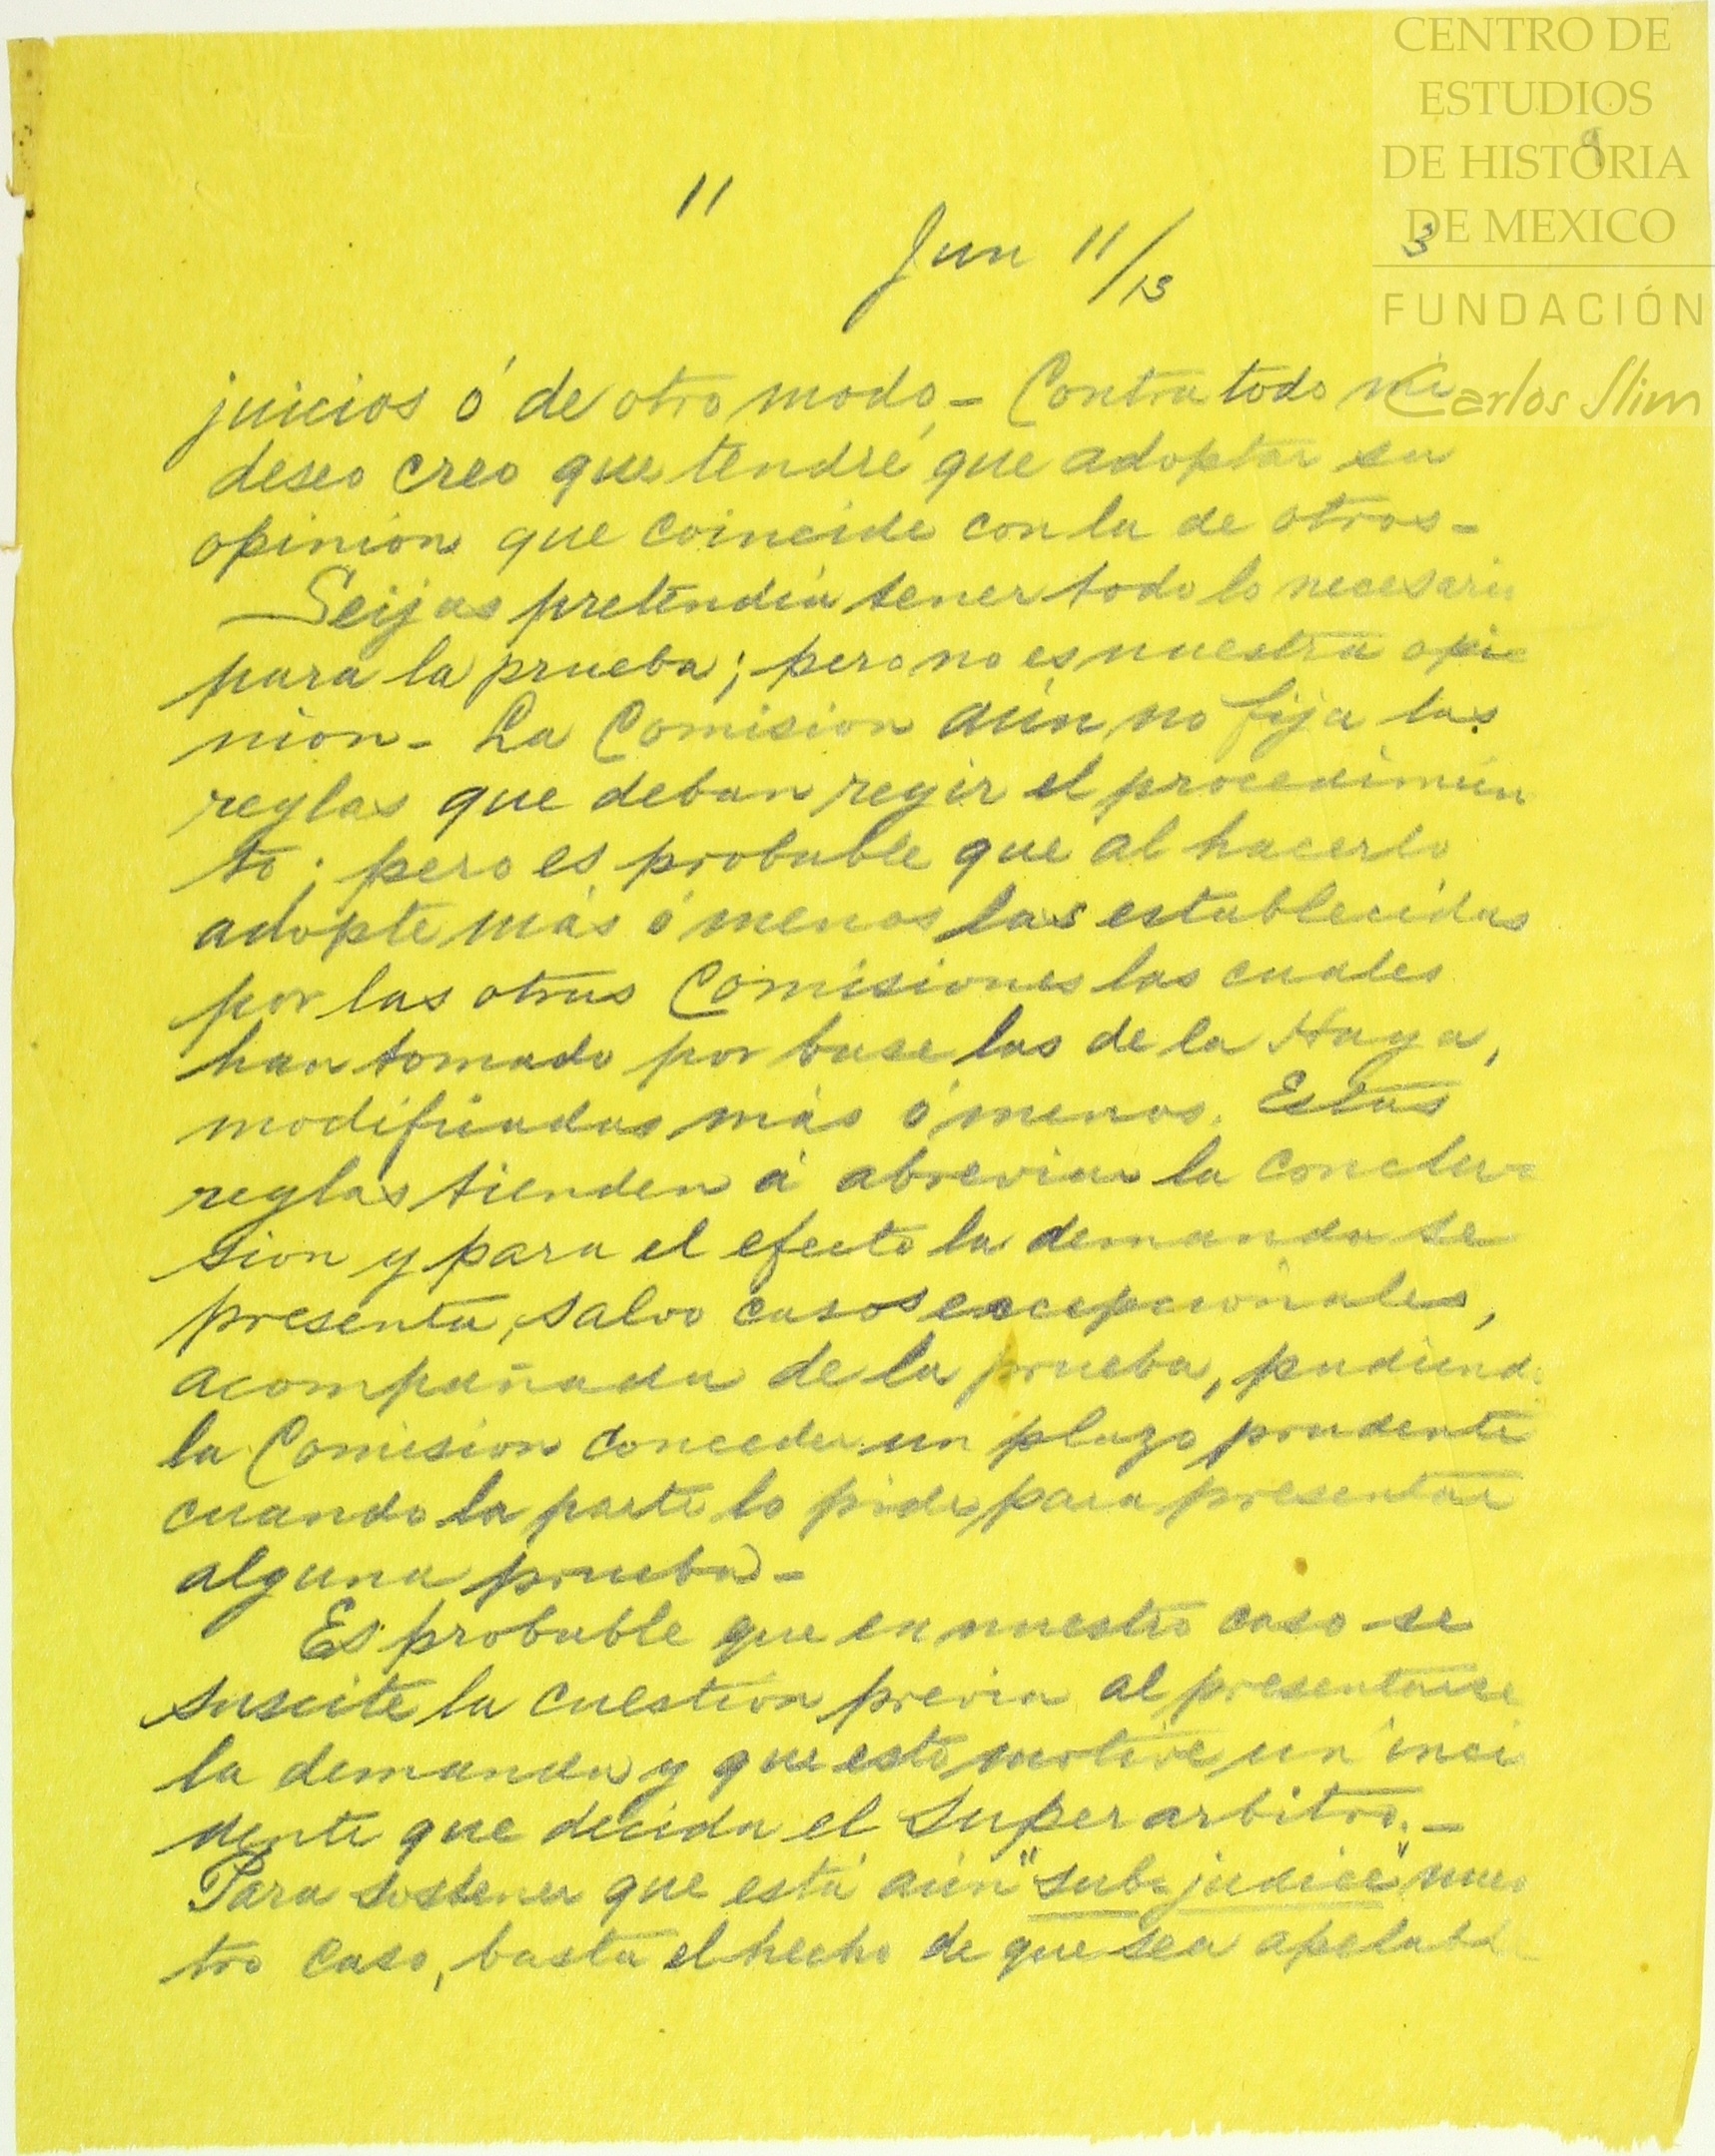 CENTRO DE
ESTUDIOS
DE HISTORIA
DE MEXICO
FUNDACIÓN
Carlos Slim
9
11
Jun 11/13
3
juicios ó de otro modo - Contra todo mi
deseo creo que tendré que adoptar su
opinion que coincide con la de otros -
Seijas pretendia tener todo lo necesario
para la prueba; pero no es nuestra opi
nion - La Comision aún no fija las
reglas que deban regir el procedimien
to; pero es probable que al hacerlo
adopte más ó menos las establecidas
por las otras Comisiones las cuales
han tomado por base las de la Haya,
modificadas más ó menos. Estas
reglas tienden á abreviar la conclu
sion y para el efecto la demanda se
presenta, salvo casos excepcionales,
acompañada de la prueba, pudiendo
la Comision conceder un plazo prudente
cuando la parte lo pide para presentar
alguna prueba -
Es probable que en nuestro caso se
suscite la cuestion previa al presentarse
la demanda y que esto motive un inci
dente que decida el Superarbitro. -
Para sostener que está aún "sub-judice" nues
tro caso, basta el hecho de que sea apelable